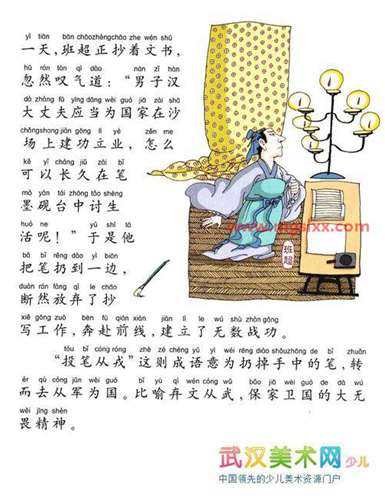 yì tiān bān chāozhèngchāo zhe wén shū
一天，班超正抄着文书，
hū rán tàn qì dào nán zǐ hàn
忽然叹气道：“男子汉
dà zhàng fū yīng dāng wèi guó jiā zài shā
大丈夫应当为国家在沙
chǎngshang jiàn gōng lì yè zěn me
场上建功立业，怎么
kě yǐ cháng jiǔ zài bǐ
可以长久在笔
mò yàn tái zhōng tǎo shēng
墨砚台中讨生
huó ne yú shì tā
活呢！”于是他
bǎ bǐ rēng dào yì biān
把笔扔到一边，
duàn rán fàng qì le chāo
断然放弃了抄
xiě gōng zuò bēn fù qián xiàn jiàn lì le wú shù zhàn gōng
写工作，奔赴前线，建立了无数战功。
tóu bǐ cóng róng zhè zé chéng yǔ yì wéi rēng diào shǒuzhōng de bǐ zhuǎn
“投笔从戎”这则成语意为扔掉手中的笔，转
ér qù cóng jūn wèi guó bǐ yù qì wén cóng wǔ bǎo jiā wèi guó de dà wú
而去从军为国。比喻弃文从武，保家卫国的大无
wèi jīng shén
畏精神。
班超
武汉美术网少儿
中国领先的少儿美术资源门户